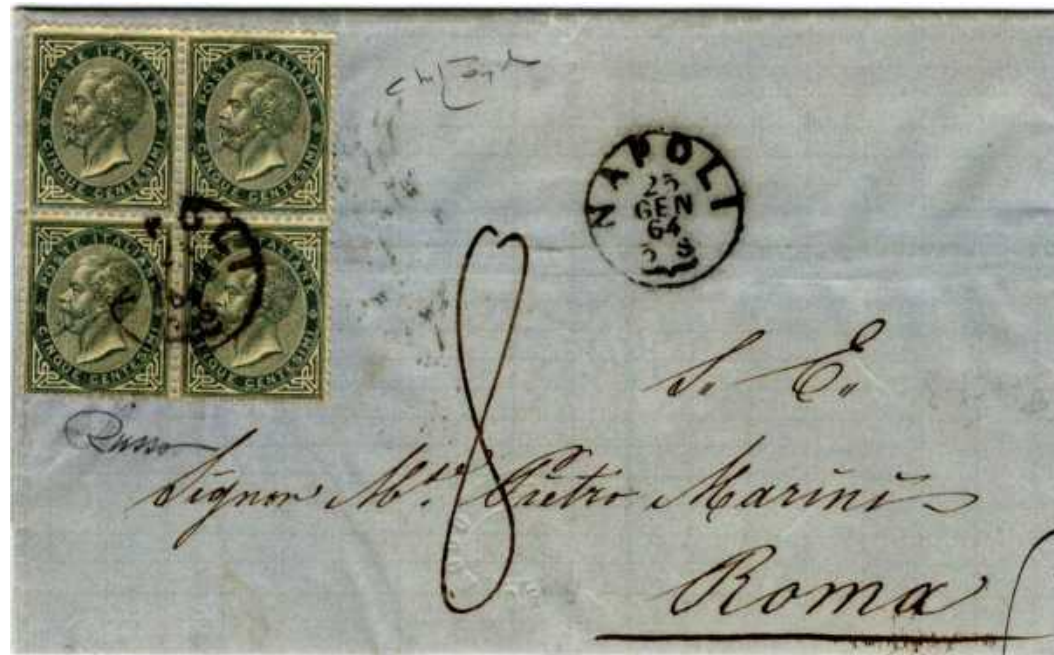 POSTE ITALIANE
CINQUE CENTESIMI
POSTE ITALIANE
CINQUE CENTESIMI
POSTE ITALIANE
CINQUE CENTESIMI
POSTE ITALIANE
CINQUE CENTESIMI
OLI
NAPOLI
25
GEN
64
S
8
S. E.
Russo
Signor Pietro Marini
Roma